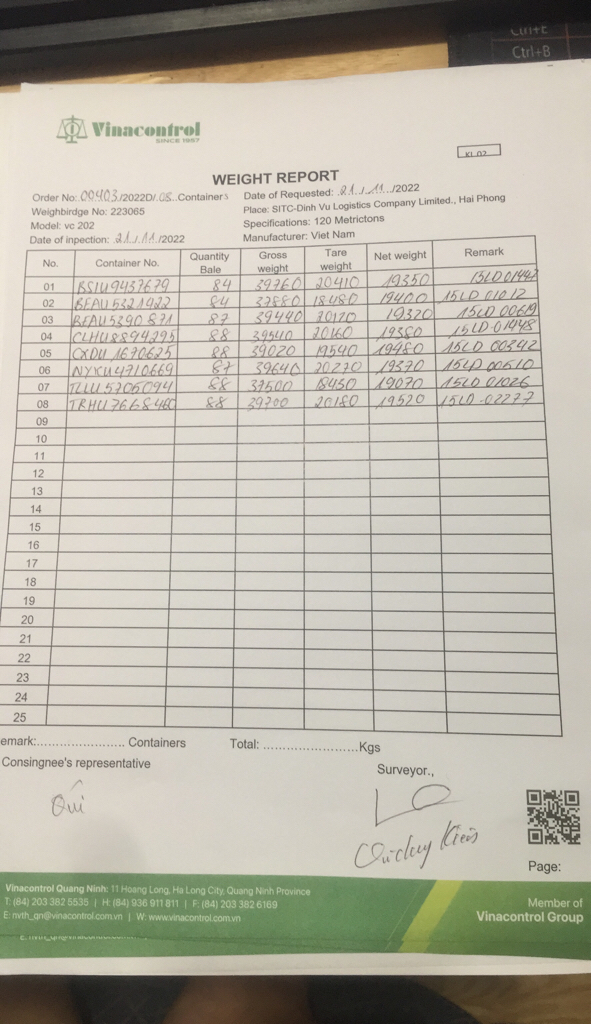 Ctrl+E
Ctrl+B
Vinacontrol
SINCE 1957
KL 02
WEIGHT REPORT
Order No: 00403/2022D/ 08 Containers Date of Requested: 21 / 11 /2022
Weighbirdge No: 223065 Place: SITC-Dinh Vu Logistics Company Limited., Hai Phong
Model: vc 202 Specifications: 120 Metrictons
Date of inpection: 21/11/2022 Manufacturer: Viet Nam
No. Container No. Quantity Bale Gross weight Tare weight Net weight Remark
01 BSIU9437679 84 39760 20410 19350 15LD 01447
02 BEAU5321922 84 37880 18480 19400 15LD 01012
03 BEAU5390871 87 39440 20120 19320 15LD 00619
04 CLHU8894295 88 39540 20160 19380 15LD-01448
05 CXDU 1670625 88 39020 19540 19480 15LD 00342
06 NYKU4710669 87 39640 20270 19370 15LD 00610
07 TLLU5705094 88 37500 18430 19070 15LD 01026
08 TRHU7668460 88 39700 20180 19520 15LD-02277
09
10
11
12
13
14
15
16
17
18
19
20
21
22
23
24
25
emark:........................ Containers Total: ..........................Kgs
Consingnee's representative
Surveyor.,
Quí
Page:
Vinacontrol Quang Ninh: 11 Hoang Long, Ha Long City, Quang Ninh Province
T: (84) 203 382 5535 | H: (84) 936 911 811 | F: (84) 203 382 6169
E: nvth_qn@vinacontrol.com.vn | W: www.vinacontrol.com.vn
Member of
Vinacontrol Group